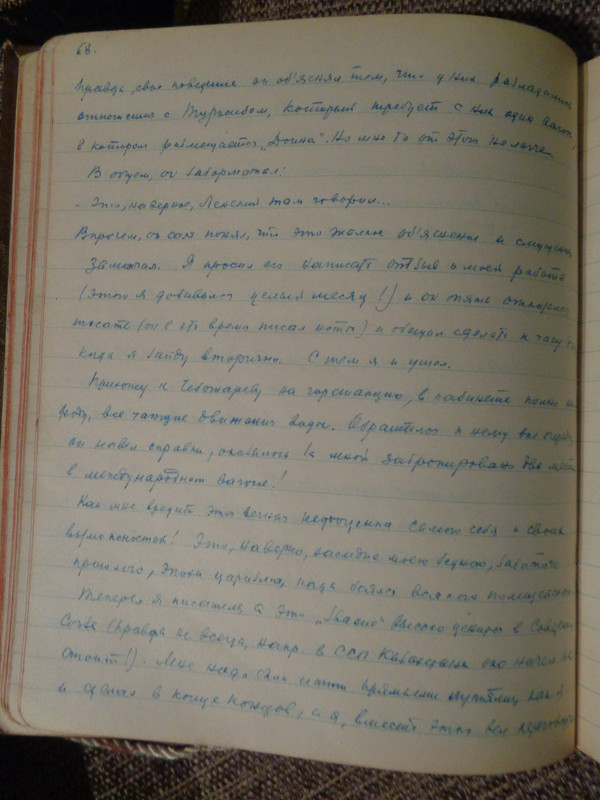 68.
Правда, свое поведение он об'яснял тем, что у них разладились
отношения с Турксибом, который требует с них один вагон,
в котором размещается "Доина". Но мне-то от этого не легче.
В общем, он забормотал:
- Это, наверное, Ленский там говорил...
Впрочем, он сам понял, что это жалкое об'яснение и смущенно
замолчал. Я просил его написать отзыв о моей работе
(этого я добивался целый месяц!) и он опять отказался
писать (он в это время писал ноты) и обещал сделать к часу
когда я зайду вторично. С тем я и ушел.
Прихожу к Чеботареву на горстанцию, в кабинете полно
народу, все чающие движения воды. Обратился к нему вне очереди,
он навел справки, оказалось за мной забронировано два места
в международном вагоне!
Как мне вредит эта вечная недооценка самого себя и своих
возможностей! Это, наверно, наследие моего бедного,
прошлого, эпохи царизма, когда боялся всякого
Теперь я писатель, а это "звание" высоко ценится в Советском
Союзе (правда не всегда, напр. в ССП Казахстана оно ничего не
стоит!). Мне надо было итти прямыми путями, как я
и сделал в конце концов, а я, вместо этого вел переговоры